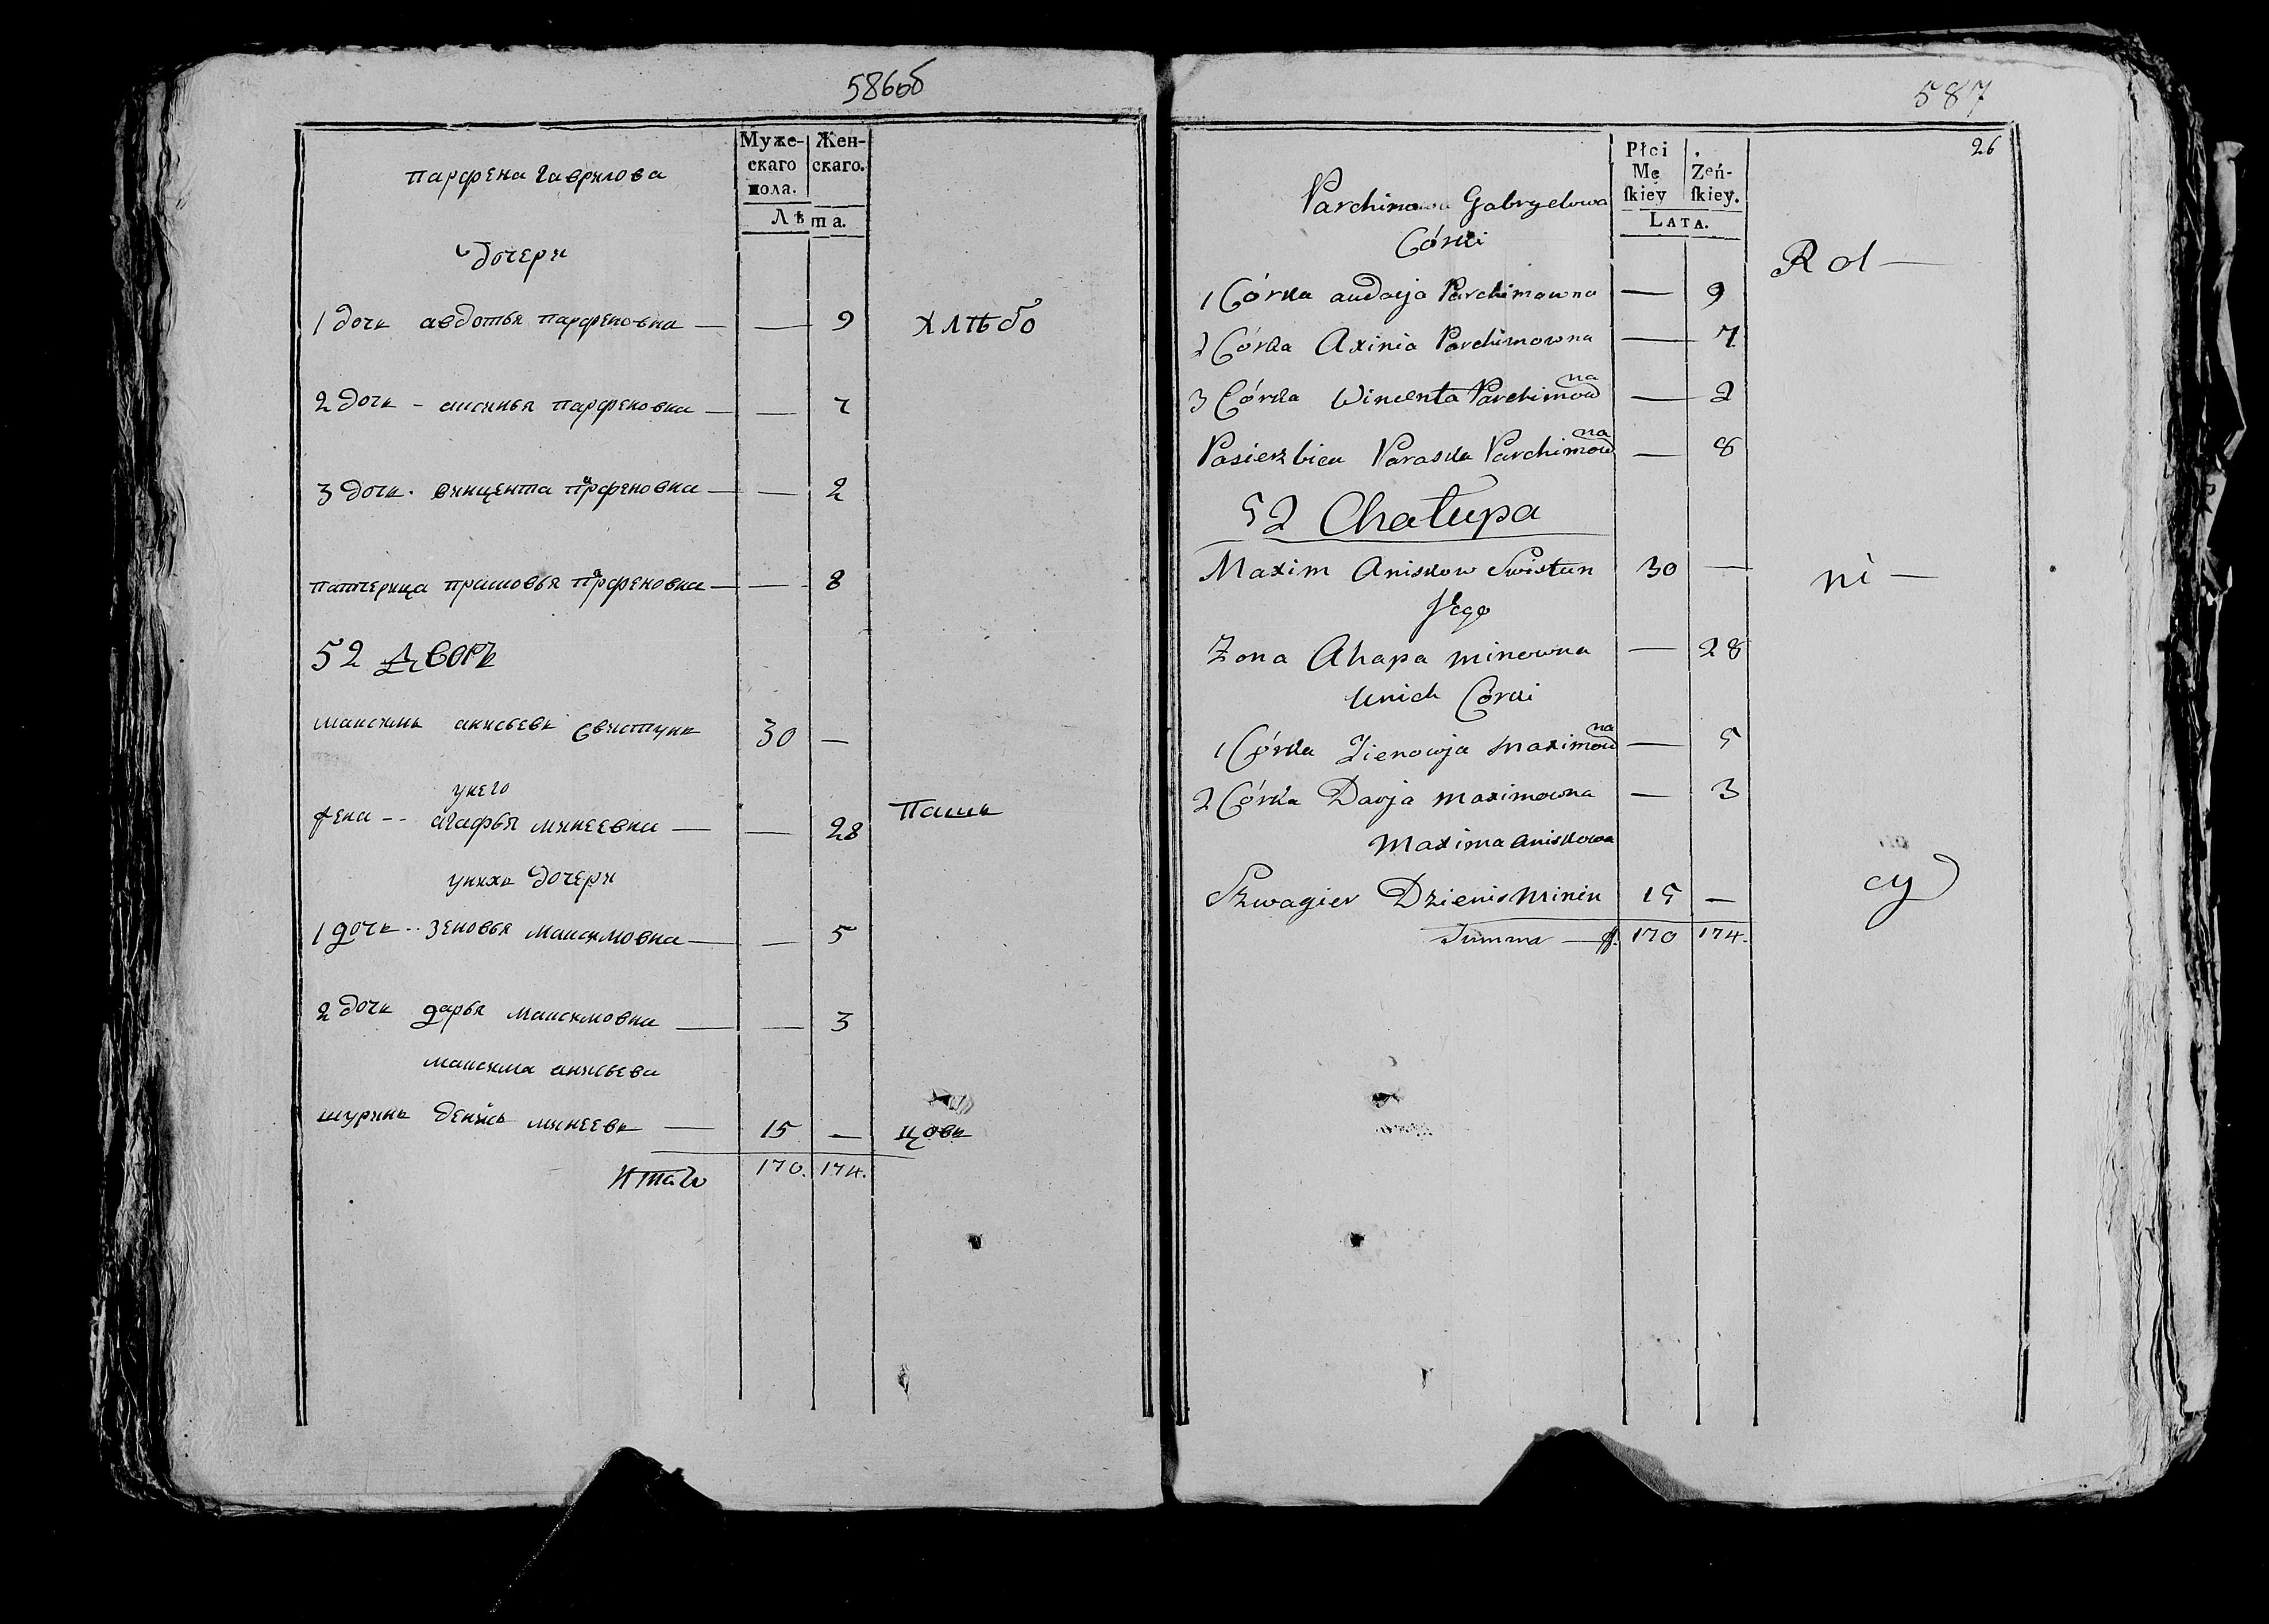 586об
Муже- Жен-
скаго скаго.
пола.
Лѣта.
парфена гаврилова
дочери
1 дочь авдотья парфеновна — — 9 хлѣбо
2 дочь - аксинья парфеновна — — 7
3 дочь. винцента парфеновна — — 2
патчерица прасковья парфеновна — — 8
52 дворъ
максимъ анисьевъ свистунъ 30 —
у него
жена -- агафья минеевна — — 28 паш
у нихъ дочери
1 дочь -- зеновья максимовна — — 5
2 дочь дарья максимовна — — 3
максима анисьева
шуринъ денисъ минеевъ — 15 — цовъ
итаго 170. 174.
587
26
Płci Zeń-
Mę ſkiey.
ſkiey
LATA.
Parchimowa Gabryelowa
Córki
Rol—
1 Córka audocja Parchimowna — 9
2 Córka Axinia Parchimowna — 7
3 Córka Wincenta Parchimowna — 2
Pasierzbica Paraska Parchimowna — 8
52 Chałupa
Maxim Aniskow Swistun 30 — ni—
Jego
Zona Ahapa minowna — 28
Unich Córki
1 Córka Zienowja Maximowna — 5
2 Córka Darja Maximowna — 3
Maxima Aniskowa
Szwagier Dzienis Minin 15 — cy
Summa — 170 174.